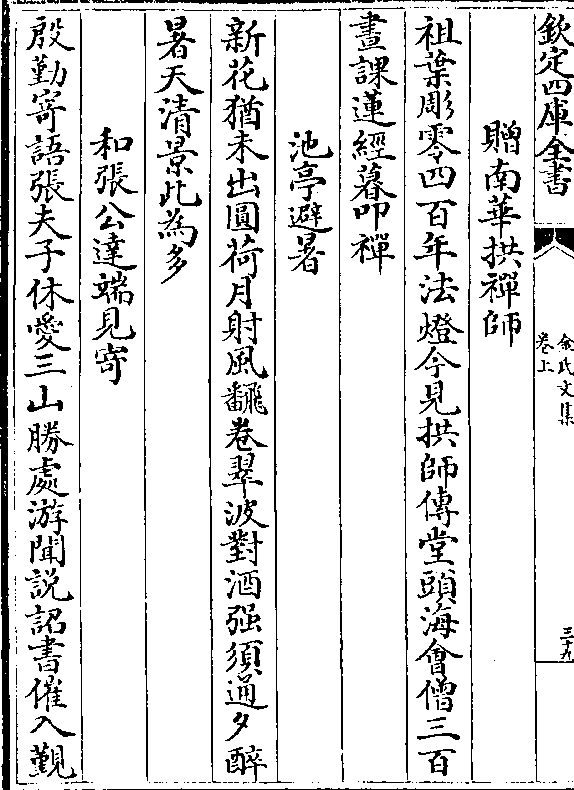 欽定四庫全書
金氏文集
卷上
三十九
贈南華拱禪師
祖葉彫零四百年法燈今見拱師傳堂頭海會僧三百
晝課蓮經暮叩禪
池亭避暑
新花猶未出圓荷月射風飜卷翠波對酒强須通夕醉
暑天清景此為多
和張公達端見寄
殷勤寄語張夫子休愛三山勝處游聞說詔書催入覲